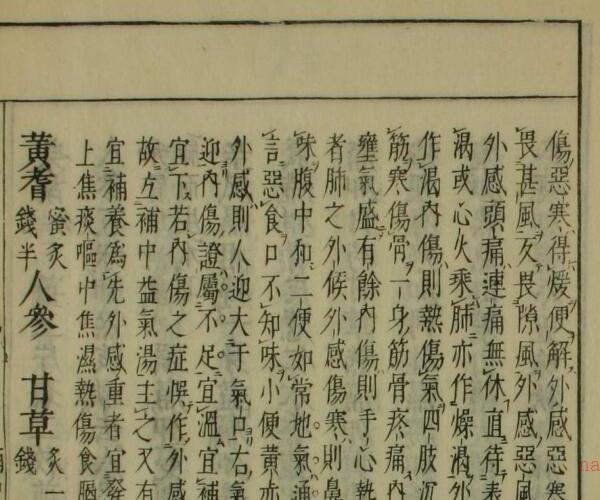 傷惡寒得煖便解外感惡寒
畏甚風反畏隙風外感惡風
外感頭痛連痛無休直待表
渴或心火乘肺亦作燥渴外
作渴內傷則熱傷氣四肢沉
筋寒傷骨一身筋骨疼痛內
壅氣盛有餘內傷則手心熱
者肺之外候外感傷寒則鼻
味腹中和二便如常地氣通
言惡食口不知味小便黃亦
外感則人迎大于氣口右氣
迎內傷證屬不足宜溫宜補
宜下若內傷之症悞作外感
故立補中益氣湯主之又有
宜補養為先外感重者宜發
上焦痰嘔中焦濕熱傷食膈
黃耆 蜜炙
錢半 人參 甘草 炙一
錢
na